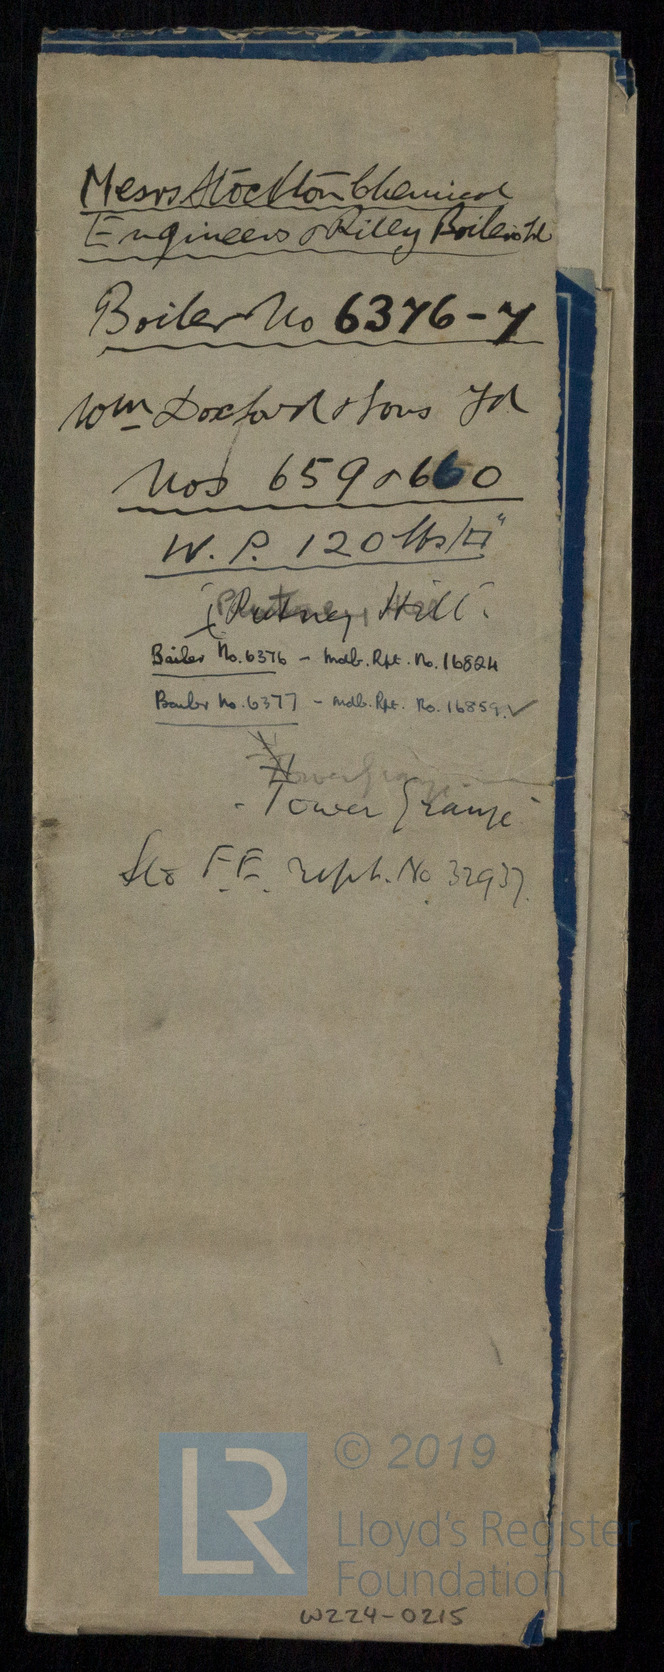 Messrs Stockton Chemical
Engineers & Riley Boilers Ld
Boiler No 6376-7
Wm Doxford & Sons Ld
Nos 659 & 660
W. P. 120 lbs/□"
"Putney Hill".
Boiler No. 6376 - Mdb. Rpt. No. 16824
Boiler No. 6377 - Mdb. Rpt. No. 16859. ✓
"Tower Grange"
See F.E. rept. No 32937.
LR
© 2019
Lloyd's Register
Foundation
W224-0215